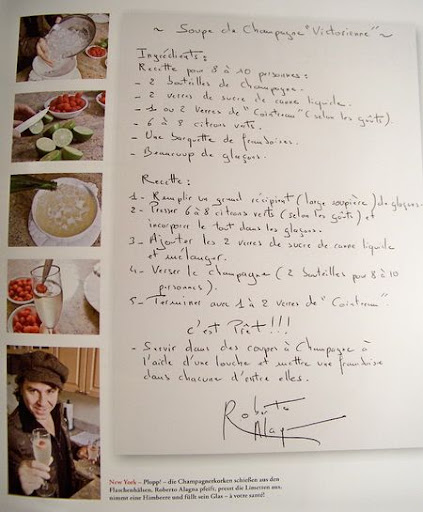 ~ Soupe de Champagne "Victorienne" ~
Ingrédients :
Recette pour 8 à 10 personnes :
- 2 bouteilles de champagne.
- 2 verres de sucre de canne liquide.
- 1 ou 2 verres de "Cointreau" (selon les goûts).
- 6 à 8 citrons verts.
- Une barquette de framboises.
- Beaucoup de glaçons.
Recette :
1- Remplir un grand récipient (large soupière) de glaçons.
2- Presser 6 à 8 citrons verts (selon les goûts) et
incorporer le tout dans les glaçons.
3- Ajouter les 2 verres de sucre de canne liquide
et mélanger.
4- Verser le champagne (2 bouteilles pour 8 à 10
personnes).
5- Terminer avec 1 à 2 verres de "Cointreau"
c'est Prêt !!!
- Servir dans des coupes à Champagne à
l'aide d'une louche et mettre une framboise
dans chacune d'entre elles.
Roberto
Alagna
New York – Plopp! – die Champagnerkorken schießen aus den
Flaschenhälsen, Roberto Alagna pfeift, presst die Limetten aus,
nimmt eine Himbeere und füllt sein Glas – à votre santé!